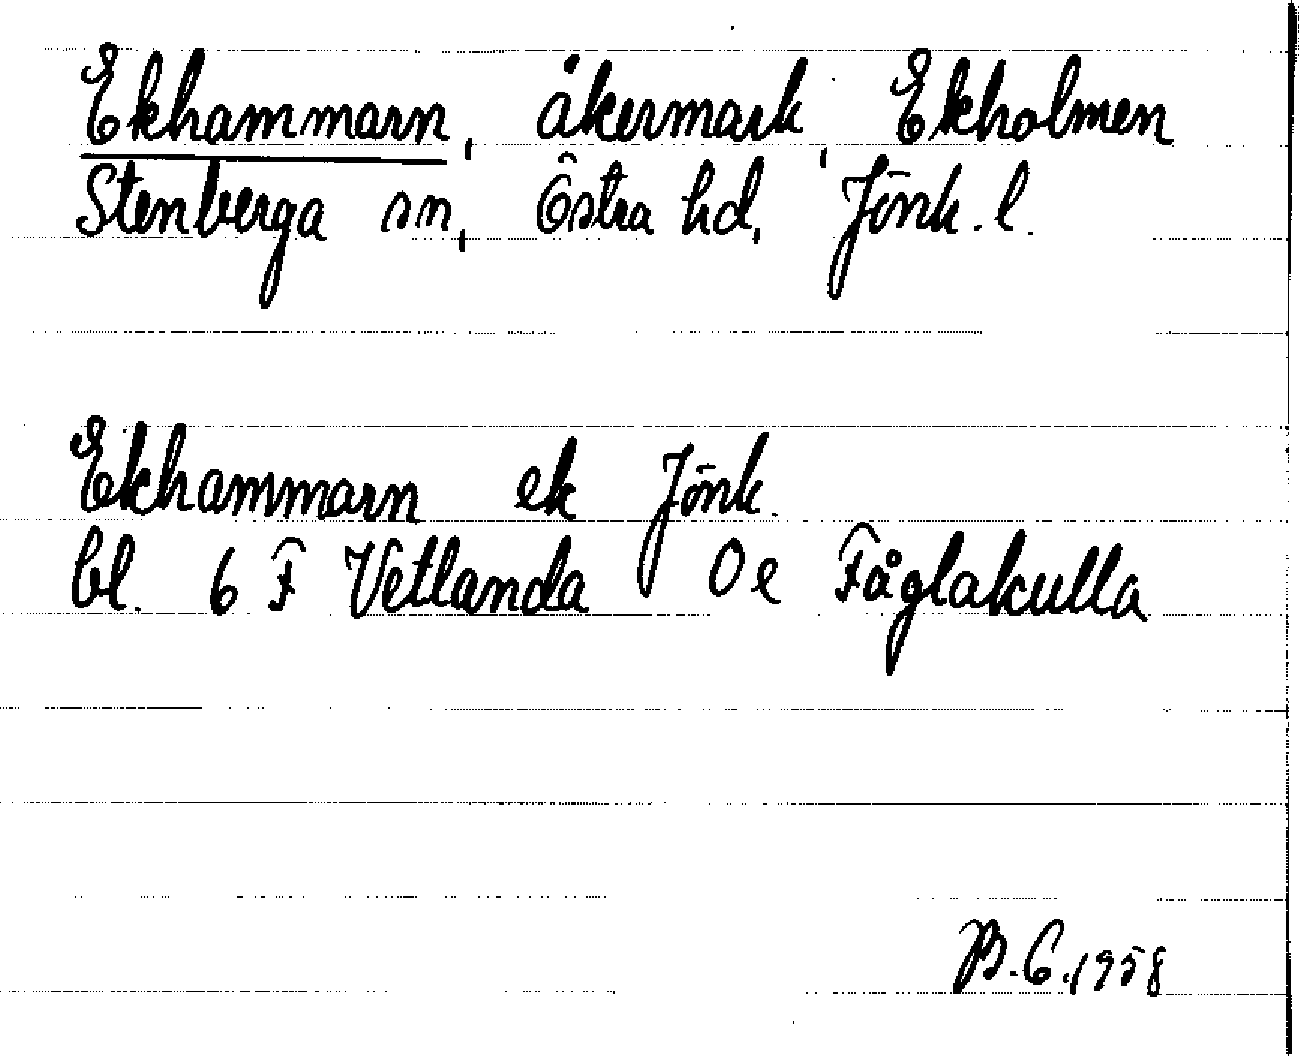 Ekhammarn, åkermark, Ekholmen
Stenberga sn, Östra hd, Jönk. l.
Ekhammarn ek Jönk.
bl. 6 F Vetlanda 0 e Fåglakulla
B.C. 1958